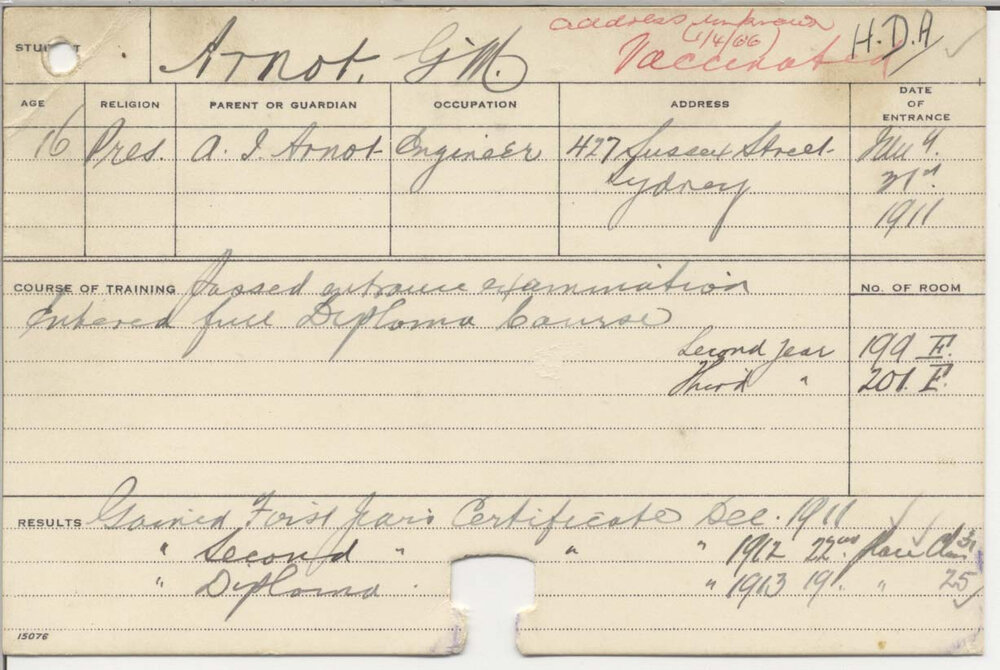 address unknown
(1/4/66)
STUDENT Arnot, G M. Vaccinated H.D.A
AGE RELIGION PARENT OR GUARDIAN OCCUPATION ADDRESS DATE OF ENTRANCE
16 Pres. A. I. Arnot Engineer 427 Sussex Street
Sydney
1911
COURSE OF TRAINING Passed entrance examination No. OF ROOM
Entered full Diploma Course
Second Year 199 F.
Third " 201. F.
RESULTS Gained First Year's Certificate Dec. 1911
" Second " " " 1912 22nd place
" Diploma " 1913 19. " 25
15076